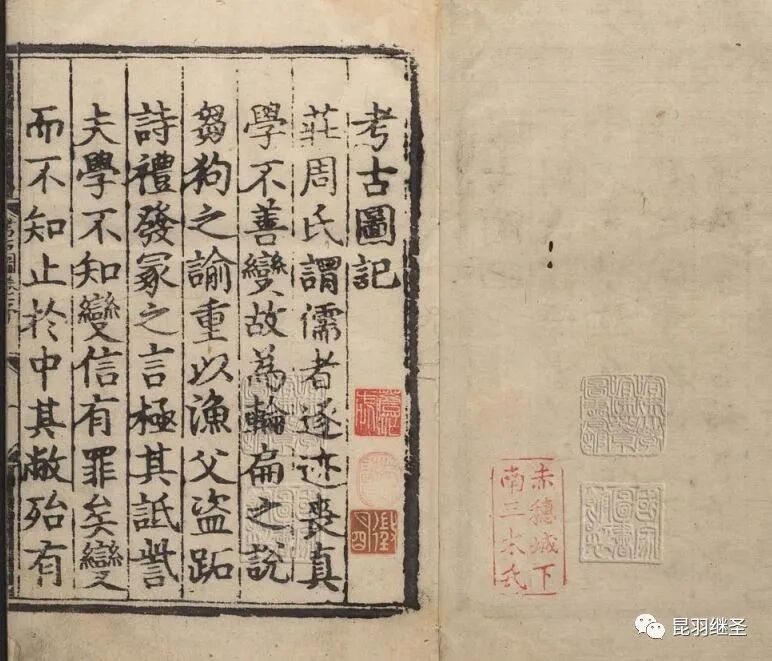 考古圖記
莊周氏謂儒者逐迹喪真
學不善變故為輪扁之說
芻狗之諭重以漁父盜跖
詩禮發冢之言極其詆訾
夫學不知變信有罪矣變
而不知止於中其敝殆有
赤穗城下
南三木氏
昆羽继圣